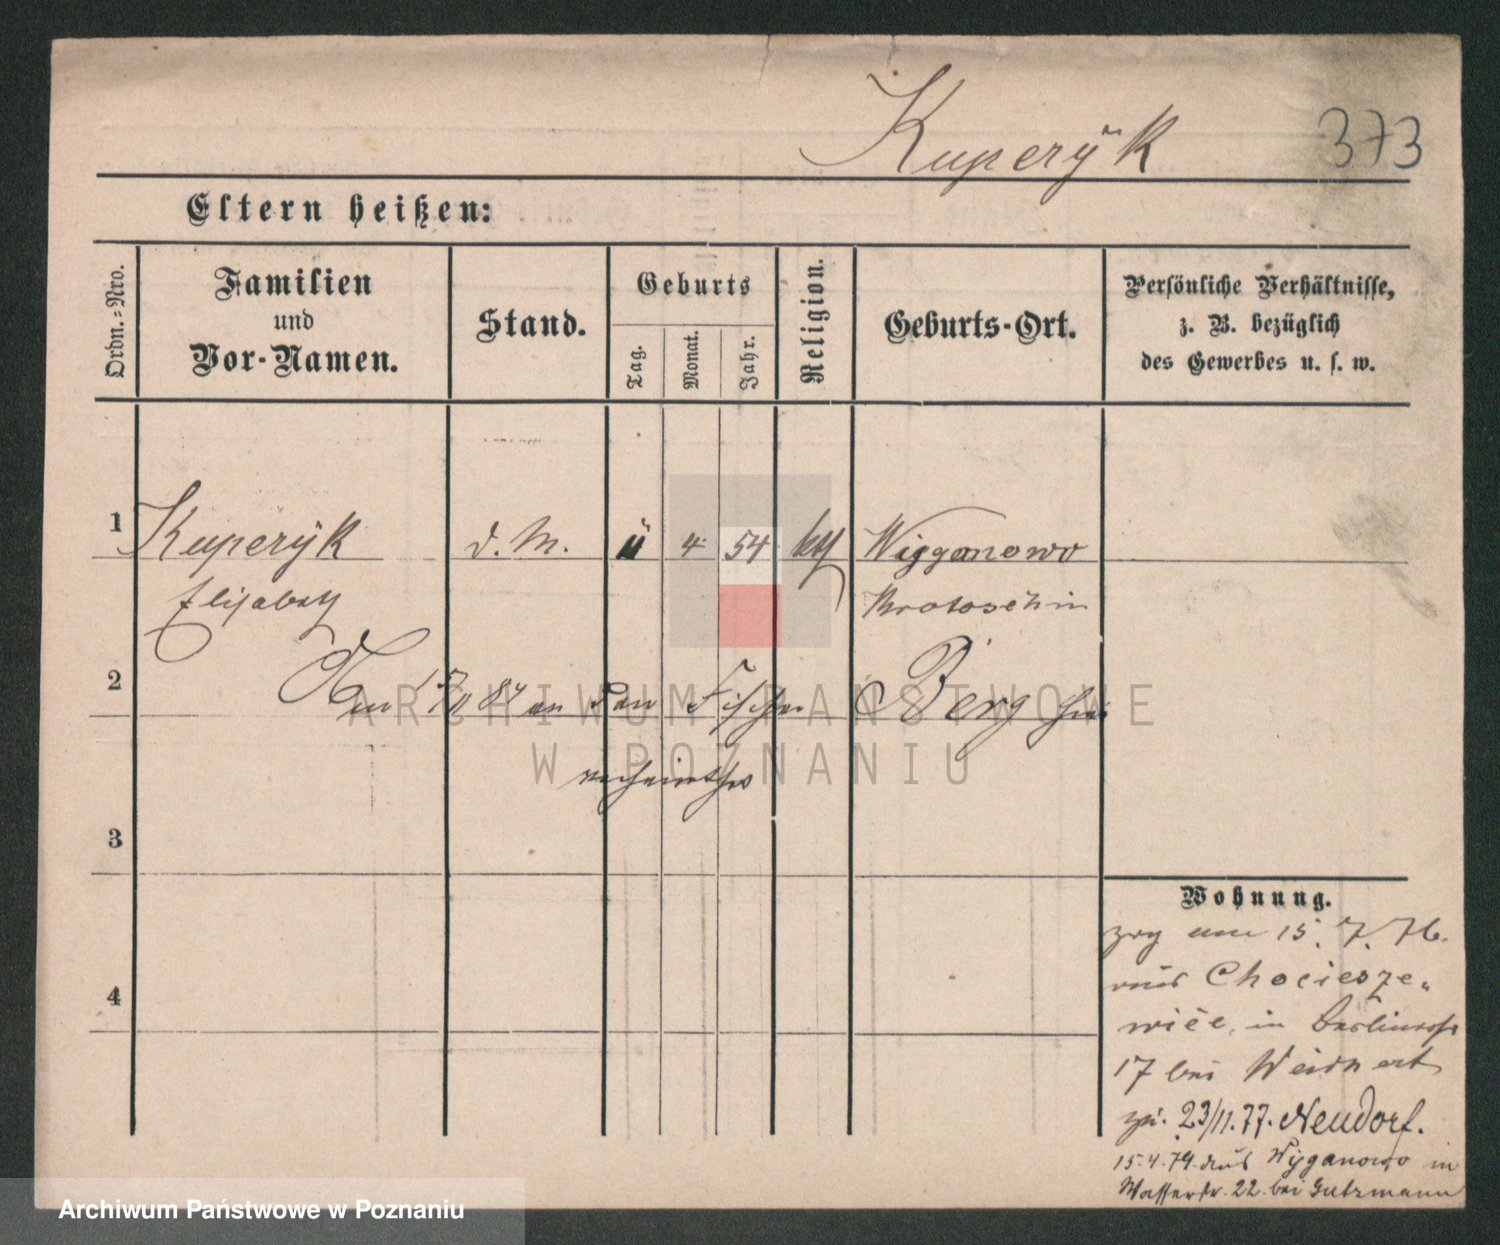 Kuperÿk 373
Eltern heißen:
Ordn.-Nro.
Familien
und
Vor-Namen.
Stand.
Geburts
Tag.
Monat.
Jahr.
Religion.
Geburts-Ort.
Persönliche Verhältnisse,
z. B. bezüglich
des Gewerbes u. s. w.
1 Kuperÿk d. M. 4 54 kth Wigganowo
Elisabeth Krotoschin
2 84 an den Fischer Berg
3
4
Wohnung.
zog am 15. 7. 76.
aus Chociesze-
wice, in Berlinerstr
17 bei Weidnert
zu. 23/11.77. Neudorf.
15.4.79. aus Wyganowo in
Wasserstr. 22. bei Gutzmann
ARCHIWUM PAŃSTWOWE
W POZNANIU
Archiwum Państwowe w Poznaniu